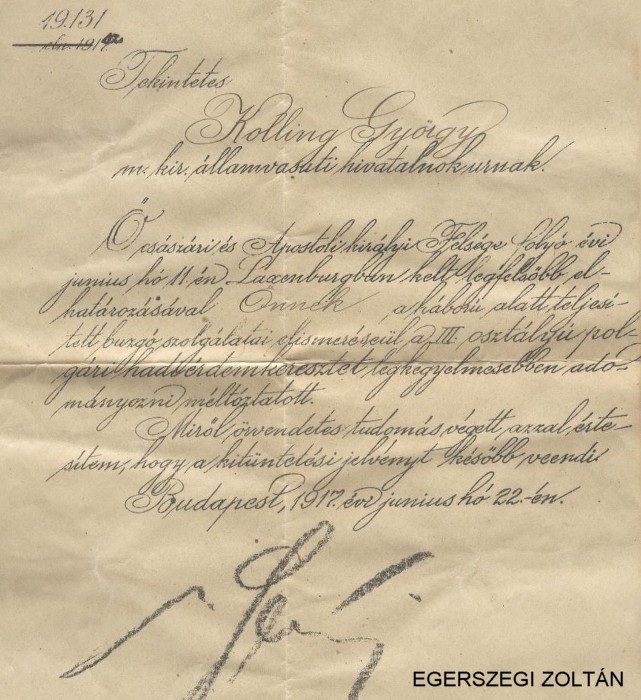 19.131
eln. 1917.
Tekintetes
Kolling György
m. kir. államvasuti hivatalnok urnak.
Ő császári és Apostoli királyi Felsége folyó évi
junius hó 11-én Laxenburgban kelt legfelsőbb el-
határozásával Önnek a háború alatt teljesi-
tett buzgó szolgálatai elismeréseül a III. osztályú pol-
gári hadi érdemkeresztet legkegyelmesebben ado-
mányozni méltóztatott.
Miről örvendetes tudomás végett azzal érte-
sítem, hogy a kitüntetési jelvényt később veendi.
Budapest, 1917. évi junius hó 22-én.
EGERSZEGI ZOLTÁN